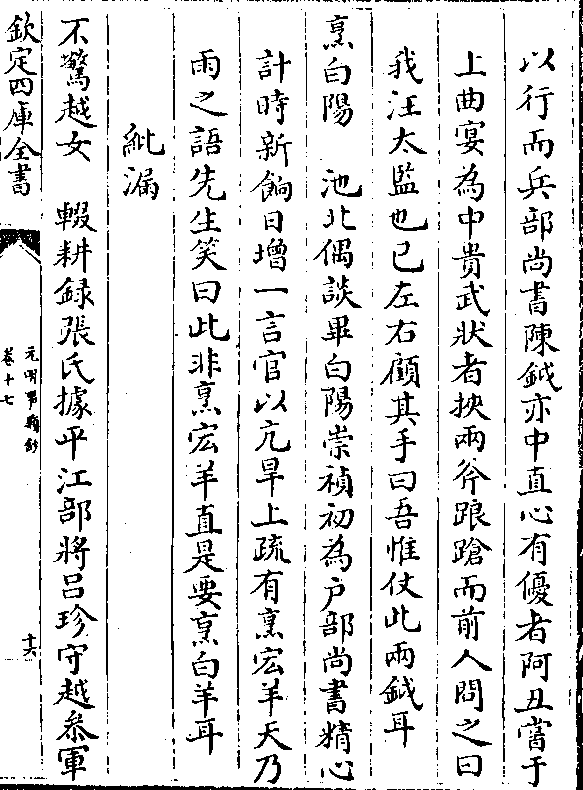 以行而兵部尚書陳鉞亦中直心有優者阿丑嘗于
上曲宴為中貴武狀者挾兩斧踉蹌而前人問之曰
我汪太監也已左右顧其手曰吾惟仗此兩鉞耳
烹白陽　池北偶談畢白陽崇禎初為戶部尚書精心
計時新餉日增一言官以亢旱上疏有烹宏羊天乃
雨之語先生笑曰此非烹宏羊直是要烹白羊耳
紕漏
不驚越女　輟耕録張氏據平江部將呂珍守越叅軍
欽定四庫全書
元明事類鈔
卷十七
十六